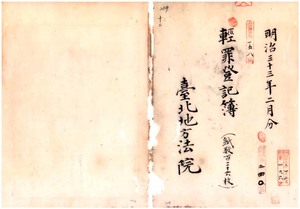 明治三十三年二月分
輕罪登記簿
(紙數百二十六枚)
臺北地方法院